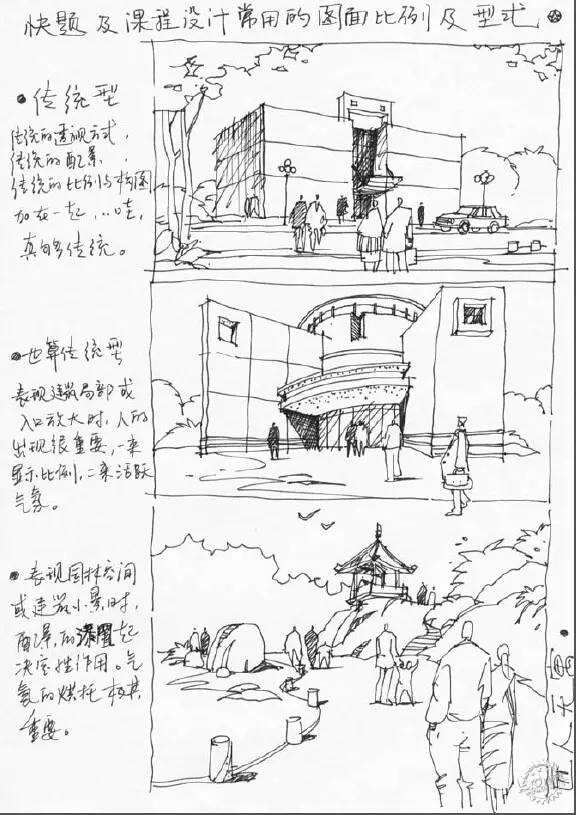 快题及课程设计常用的图面比例及型式
●传统型
传统的透视方式,
传统的配景,
传统的比例与构图
加在一起,…哇,
真的传统。
●也算传统型
表现建筑局部或
入口放大时,人的
出现很重要,一来
显示比例,二来活跃
气氛。
●表现园林空间
或建筑小景时,
配景的 起
决定性作用。气
氛的烘托极其
重要。